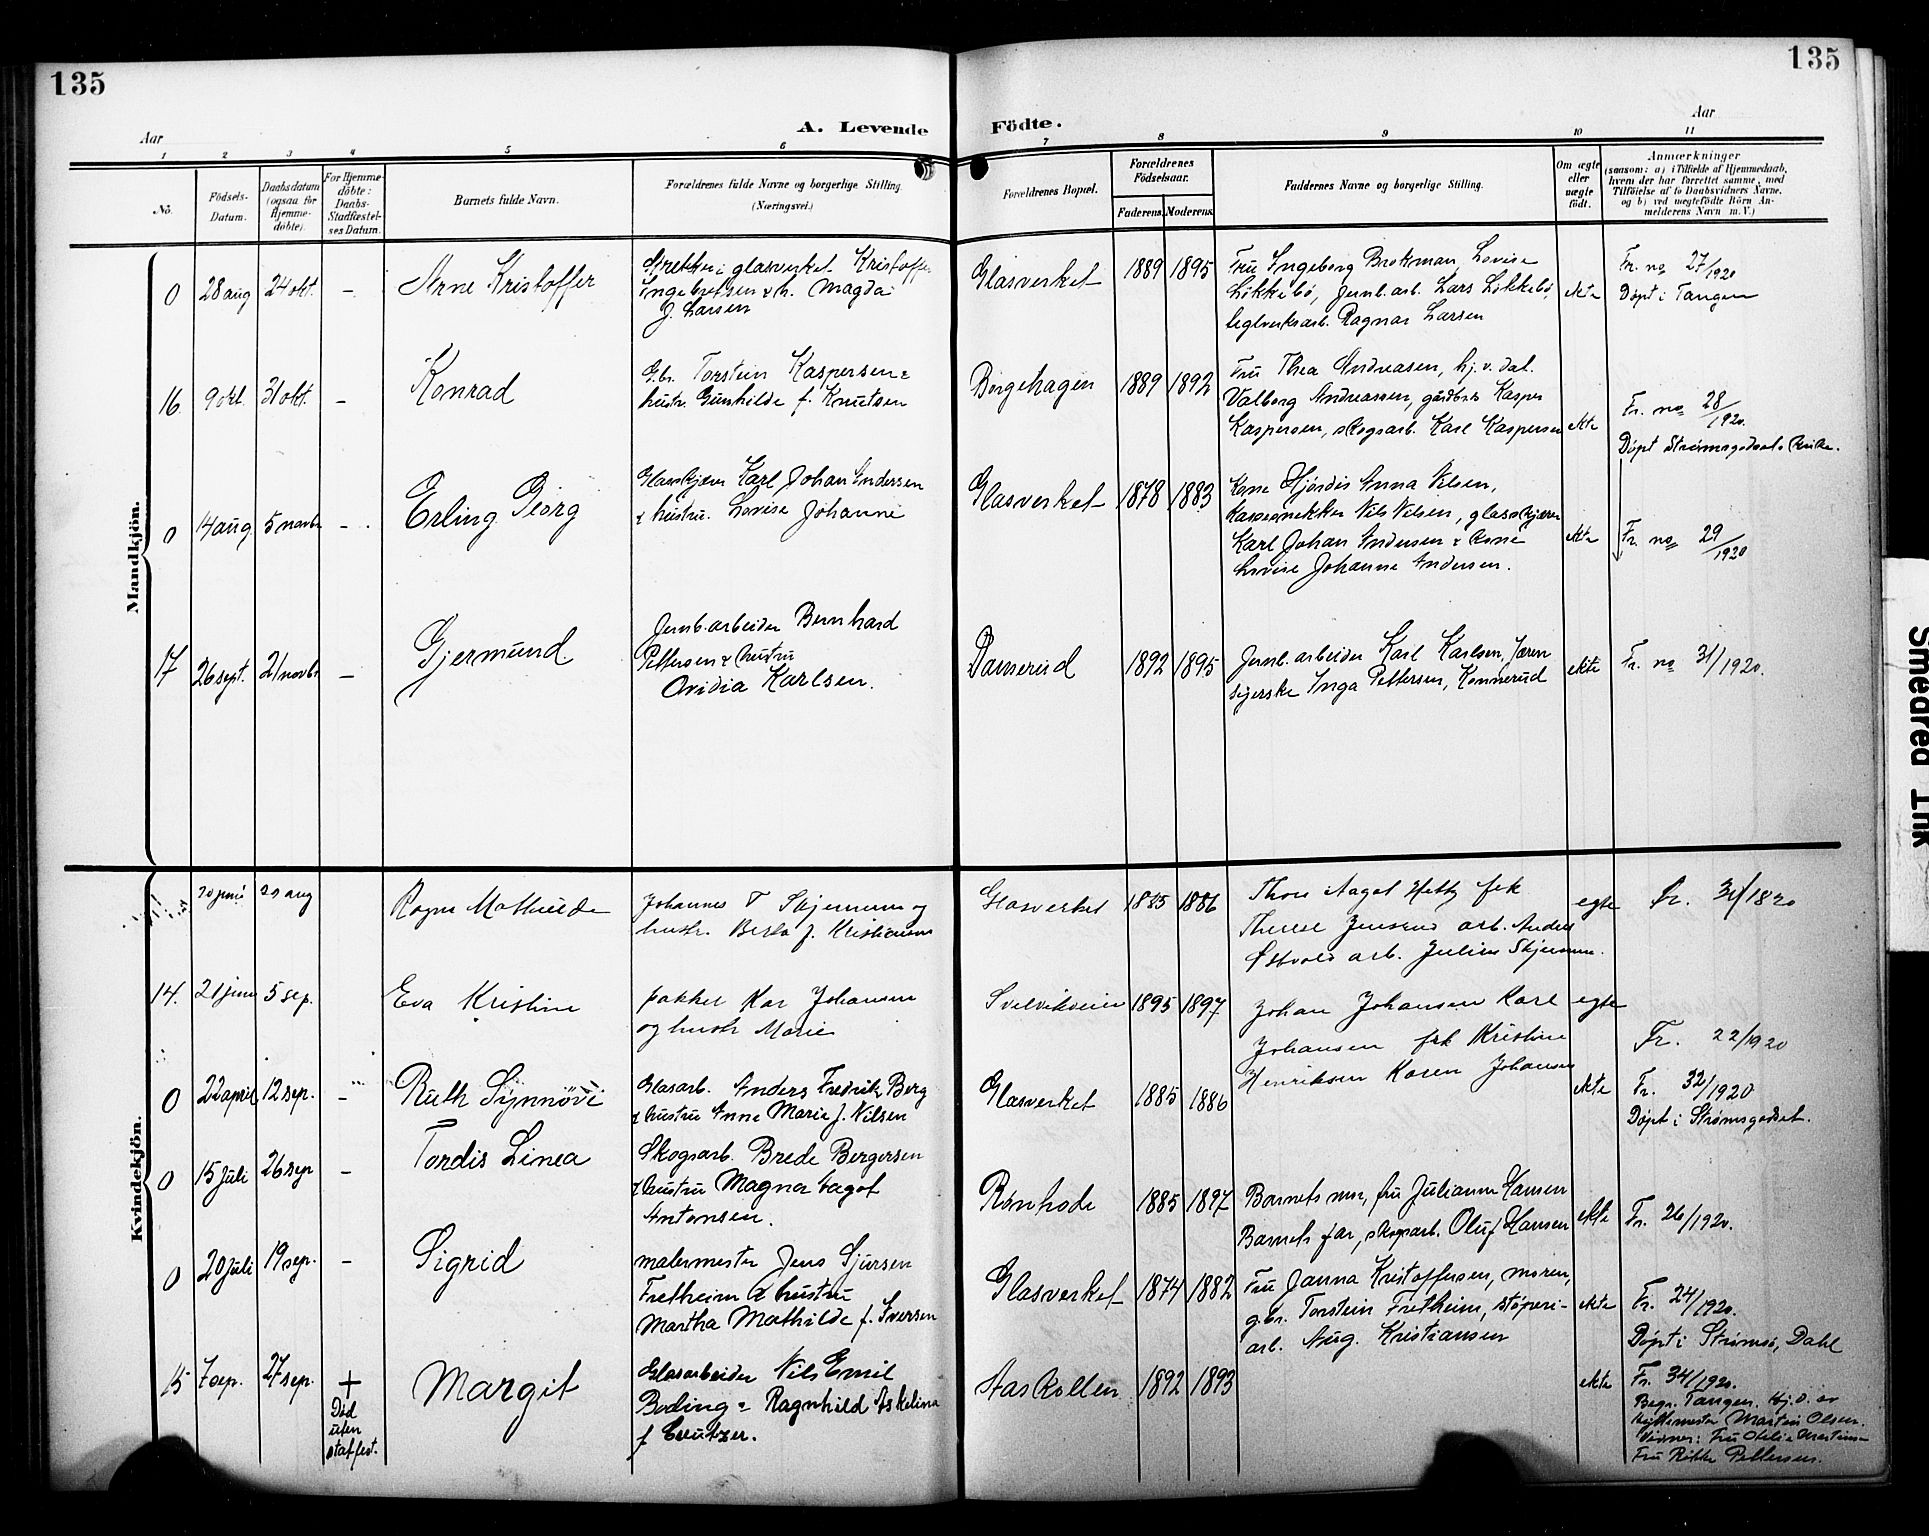 135
135
Aar
A. Levende
Födte.
Aar
1 2 3 4 5 6
7 8 9 10 11
No.
Födsels-
Datum.
Daabsdatum
(ogsaa for
Hjemme-
döbte).
For Hjemme-
döbte:
Daabs-
Stadfæstel-
ses Datum.
Barnets fulde Navn.
Forældrenes fulde Navne og borgerlige Stilling.
(Næringsvei.)
Forældrenes Bopæl.
Forældrenes
Födselsaar.
Faderens. Moderens.
Faddernes Navne og borgerlige Stilling.
Om ægte
eller
uægte
födt.
Anmærkninger
(saasom: a) i Tilfælde af Hjemmedaab,
hvem der har forrettet samme, med
Tilföielse af to Daabsvidners Navne,
og b) ved uægtefödte Börn An-
melderens Navn m. V.)
Mandkjöm.
0 28 aug 24 okt. - Arne Kristoffer
Strekker i glasverket Kristoffer
Ingebretsen & h. Magda
J. Larsen
Glasverket 1889 1895
Fru Ingeborg Brokman, Lovise
Løkkebø, Jernb. arb. Lars Løkkebø,
teglverksarb. Ragnar Larsen
ekte
Fr. no 27/1920
Døpt i Tangen
16 9 okt. 31 okt. - Konrad
G.br. Torstein Kaspersen &
hustr. Gunhilde f. Knutsen
Borgehagen 1889 1892
Fru Thea Andreasen, hj. v. dat.
Valborg Andreassen, gårdbr. Kasper
Kaspersen, skogsarb. Karl Kaspersen
ekte
Fr. no 28/1920.
Døpt Strømsgodset Kirke.
0 14 aug 5 novbr - Erling Georg
Glasskjærer Karl Johan Andersen
& hustru. Lovise Johanne
Glasverket 1878 1883
Kone Hjørdis Anna Nilsen,
Karl Johan Andersen & kone
Lovise Johanne Andersen.
ekte
Fr. no 29/1920
17 26 sept. 21 novbr - Gjermund
Jernb. arbeider Bernhard
Pettersen & hustru
Ovidia Karlsen.
1892 1895
Jernb. arbeider Karl Karlsen, Jæren
Inga Pettersen, Konnerud
ekte
Fr. no 31/1920.
Kvindekjön.
20 juni 29 aug
Johannes T Skjerum og
hustr. f. Kristiansen
Glasverket 1885 1886
Therese Jensen arb. Anders
Østvold arb. Julius
egte
Fr. 31/1820
14. 21 juni 5 sep. Eva Kristine
pakker Kar Johansen
og hustr Marie
Svelvikveien 1895 1897
Johan Johansen Karl
Johansen frk Kristine
Henriksen Karen Johansen
egte
Fr. 22/1920
0 22 april 12 sep. - Ruth Synnøve
Glasarb. Anders Fredrik Berg
& hustru Anne Marie f. Nilsen
Glasverket 1885 1886
ekte
Fr. 32/1920
Døpt i Strømsgodset.
0 15 juli 26 sep - Tordis Linea
Skogsarb. Brede Bergersen
& hustru Magna Aagot
Antonsen.
1885 1897
Barnets mor, fru Julianne Hansen
Barnets far, skogsarb. Oluf Hansen
ekte
Fr. 26/1920.
0 20 juli 19 sep. - Sigrid
malermester Jens Sjursen
Fretheim & hustru
Martha Mathilde f. Iversen
Glasverket 1874 1882
Fru Janna Kristoffersen, moren,
g.br. Torstein Fretheim, støperi-
arb. Aug. Kristiansen
ekte
Fr. 24/1920.
Døpt i Strømsø, Dahl
15 7 sep. 27 sep. +
Død
uten
statfest.
Margit
Glasarbeider Nils Emil
Boding & Ragnhild Askelina
f Creutzer.
Aaskollen 1892 1893
ekte
Fr. 34/1920.
Begr. Tangen. Hj. d. av
Martin Olsen.
Vidner: Fru
Fru Rikke Pettersen.
Smeared Ink